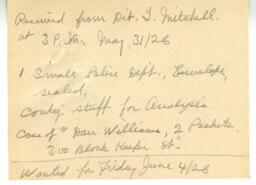 Received from Det. T. Mitchell.
at 3 P.M. May 31/26
1 Small Police Dept., Envelope,
sealed,
stuff for Analysis.
Case of "Dan Williams, 2 Packets.
300 Block Keefer St."
Wanted for Friday June 4/26